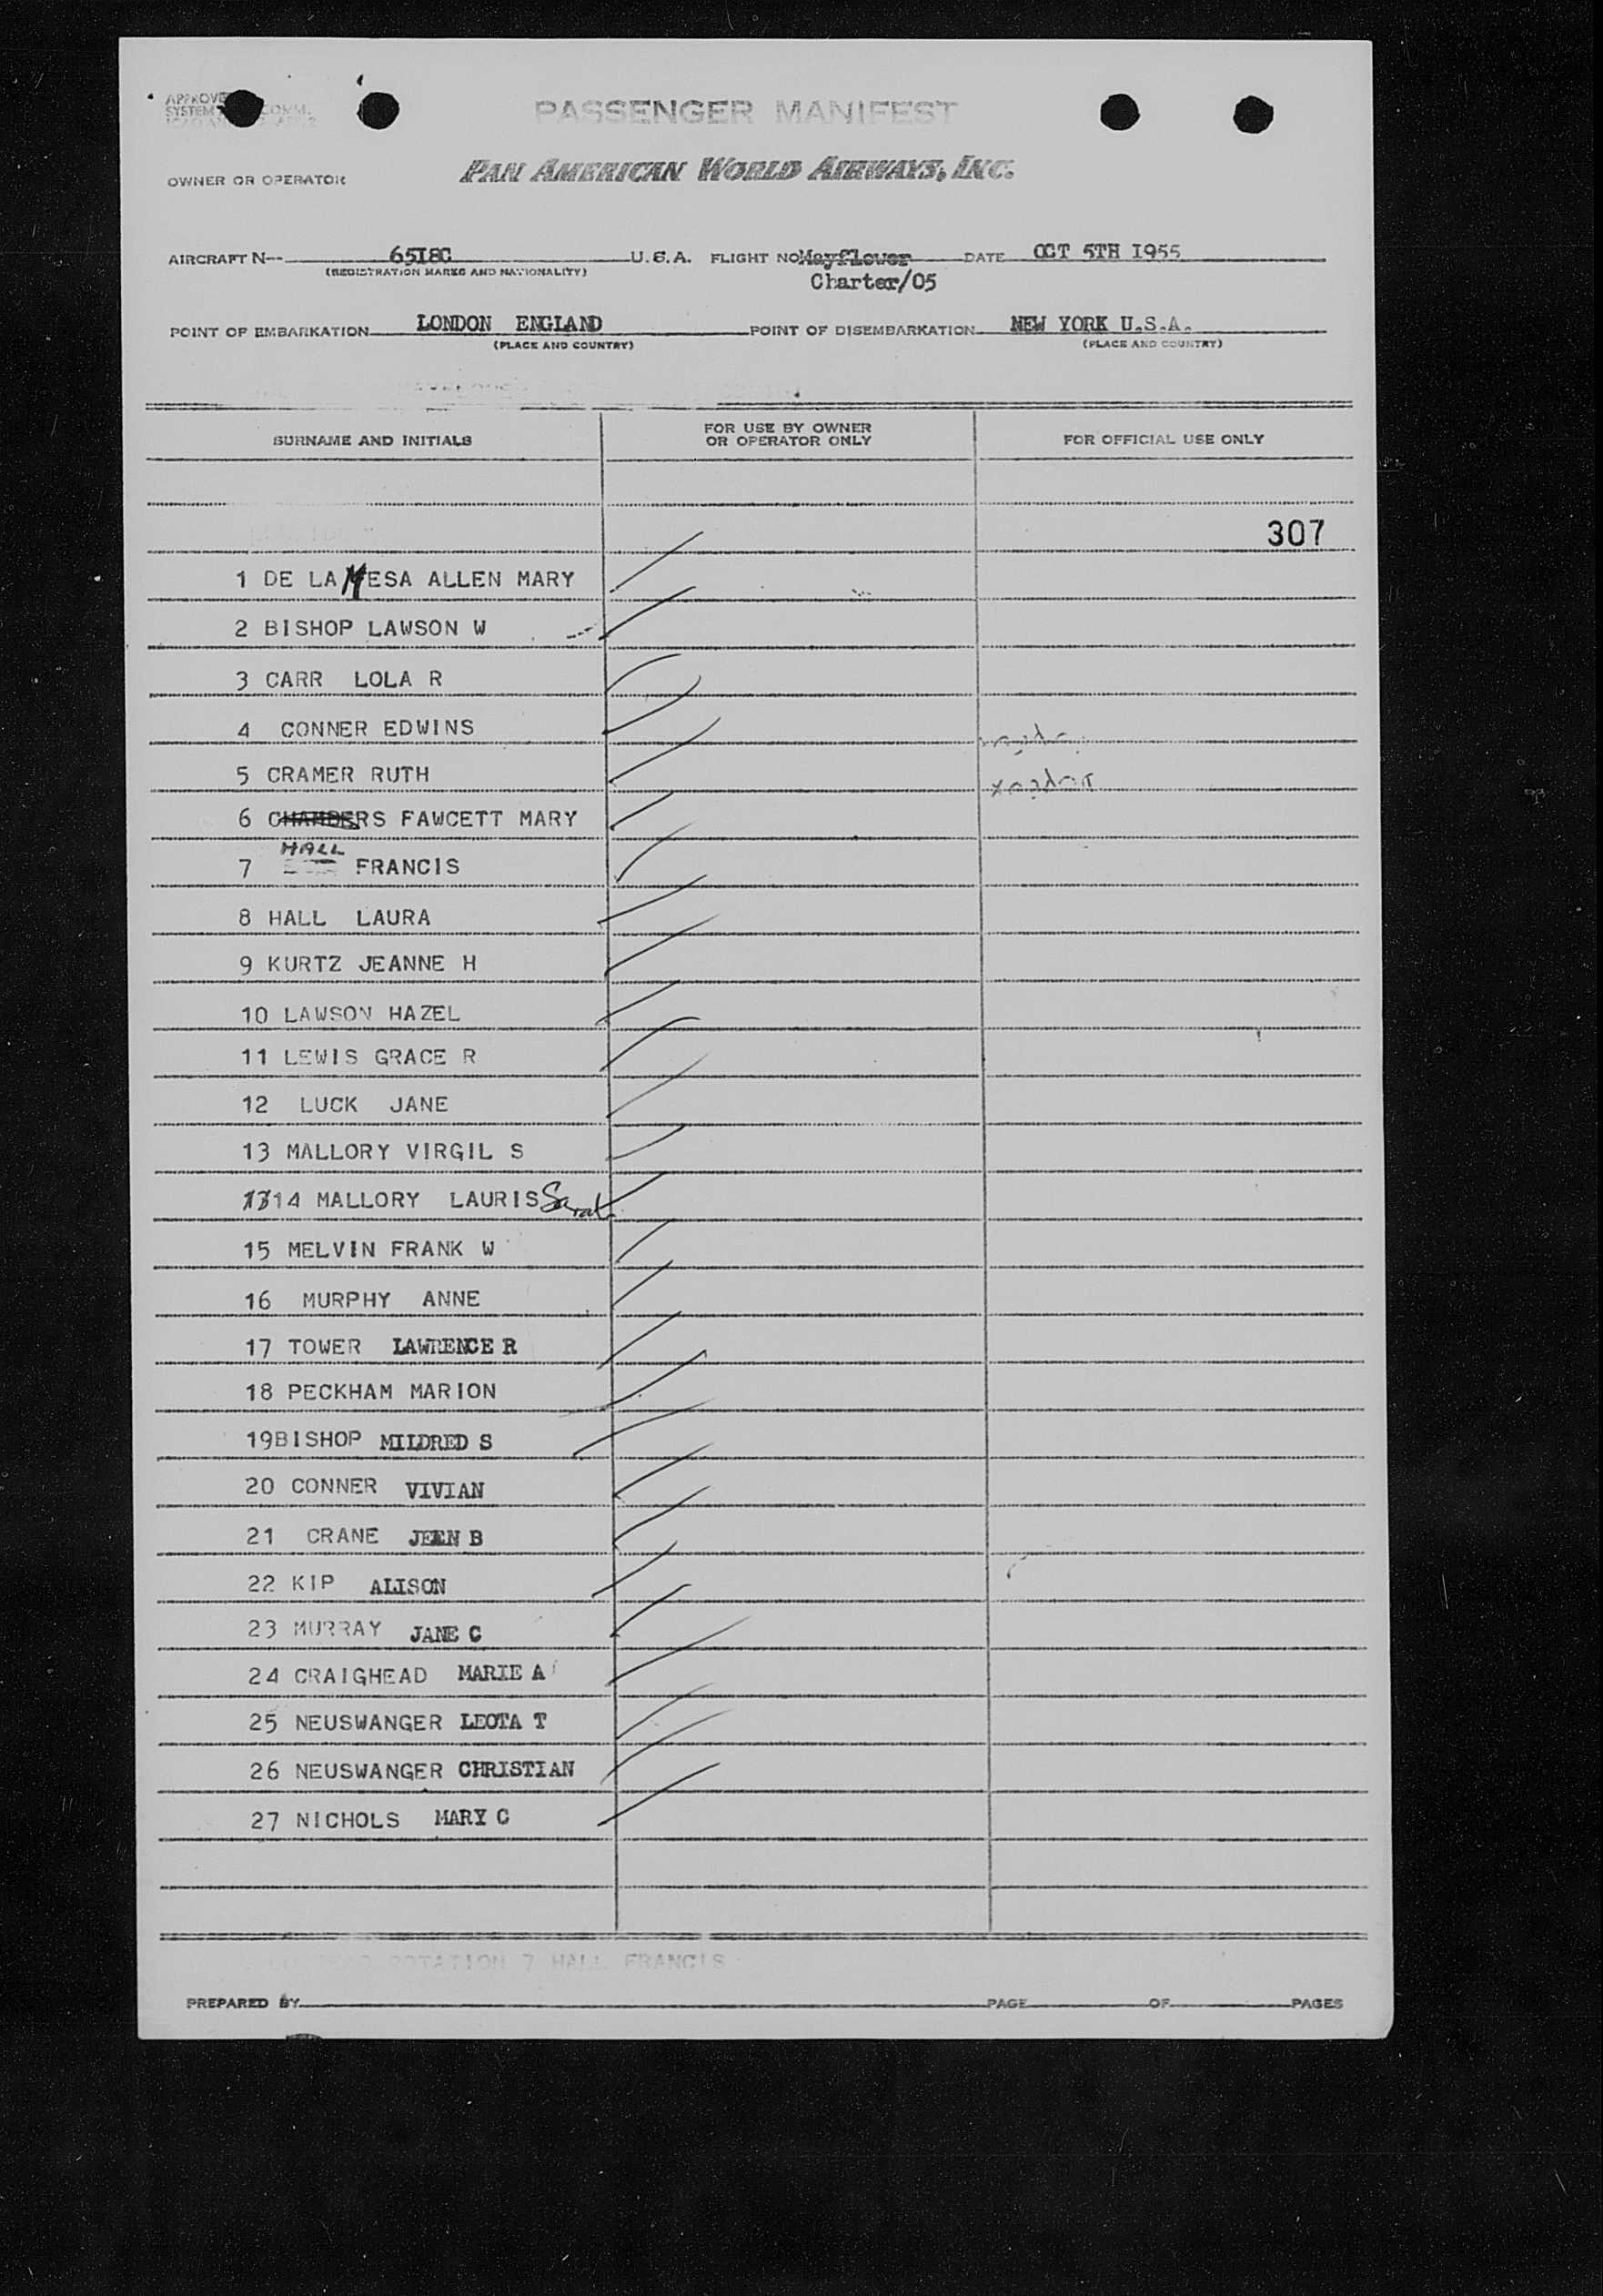 PASSENGER MANIFEST
OWNER OR OPERATOR PAN AMERICAN WORLD AIRWAYS, INC.
AIRCRAFT N-- 6518C U.S.A. FLIGHT NO Mayflower DATE OCT 5TH 1955
(REGISTRATION MARKS AND NATIONALITY) Charter/05
POINT OF EMBARKATION LONDON ENGLAND POINT OF DISEMBARKATION NEW YORK U.S.A.
(PLACE AND COUNTRY) (PLACE AND COUNTRY)
SURNAME AND INITIALS FOR USE BY OWNER OR OPERATOR ONLY FOR OFFICIAL USE ONLY
307
1 DE LA MESA ALLEN MARY
2 BISHOP LAWSON W
3 CARR LOLA R
4 CONNER EDWINS
5 CRAMER RUTH
6 CHAMBERS FAWCETT MARY
7 HALL FRANCIS
8 HALL LAURA
9 KURTZ JEANNE H
10 LAWSON HAZEL
11 LEWIS GRACE R
12 LUCK JANE
13 MALLORY VIRGIL S
14 MALLORY LAURIS Sarah
15 MELVIN FRANK W
16 MURPHY ANNE
17 TOWER LAWRENCE R
18 PECKHAM MARION
19BISHOP MILDRED S
20 CONNER VIVIAN
21 CRANE JEEN B
22 KIP ALISON
23 MURRAY JANE C
24 CRAIGHEAD MARIE A
25 NEUSWANGER LEOTA T
26 NEUSWANGER CHRISTIAN
27 NICHOLS MARY C
ROTATION 7 HALL FRANCIS
PREPARED BY PAGE OF PAGES